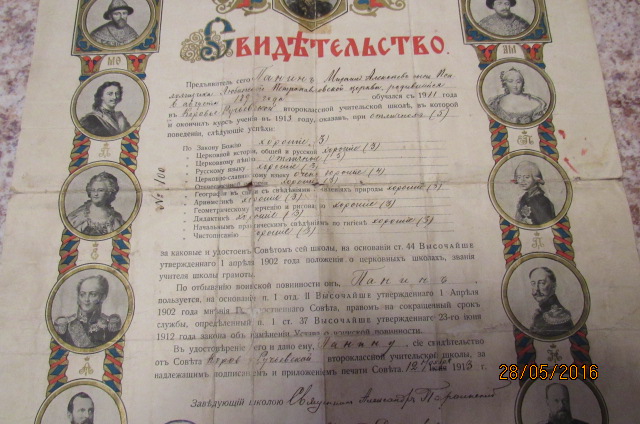 Свидѣтельство.
Предъявитель сего Панинъ
обучался съ 1911 года
второклассной учительской школѣ, въ которой
и окончилъ курсъ ученія въ 1913 году, оказавъ, при отличномъ (5)
поведеніи, слѣдующіе успѣхи:
По Закону Божію хорошіе (3)
Церковной исторіи, общей и русской хорошіе (3)
Церковному пѣнію отличные (5)
Русскому языку хорошіе (3)
Церковно-славянскому языку очень хорошіе (4)
Географіи въ связи съ свѣдѣніями о явленіяхъ природы хорошіе (3)
Ариѳметикѣ хорошіе (3)
Геометрическому черченію и рисован. хорошіе (3)
Дидактикѣ хорошіе (3)
Начальнымъ практическимъ свѣдѣніямъ по гигіенѣ хорошіе (3)
Чистописанію хорошіе (3)
за каковые и удостоенъ Совѣтомъ сей школы, на основаніи ст. 44 Высочайше
утвержденнаго 1 апрѣля 1902 года положенія о церковныхъ школахъ, званія
учителя школы грамоты.
По отбыванію воинской повинности онъ, Панинъ
пользуется, на основаніи п. 1 отд. II Высочайше утвержденнаго 1 Апрѣля
1902 года мнѣнія Государственнаго Совѣта, правомъ на сокращенный срокъ
службы, опредѣленный п. 1 ст. 37 Высочайше утвержденнаго 23-го іюня
1912 года закона объ измѣненіи Устава о воинской повинности.
Въ удостовѣреніе чего и дано ему, Панину, сіе свидѣтельство
отъ Совѣта второклассной учительской школы, за
надлежащимъ подписаніемъ и приложеніемъ печати Совѣта. 12 1913 г.
28/05/2016
Завѣдующій школою Священникъ Александръ